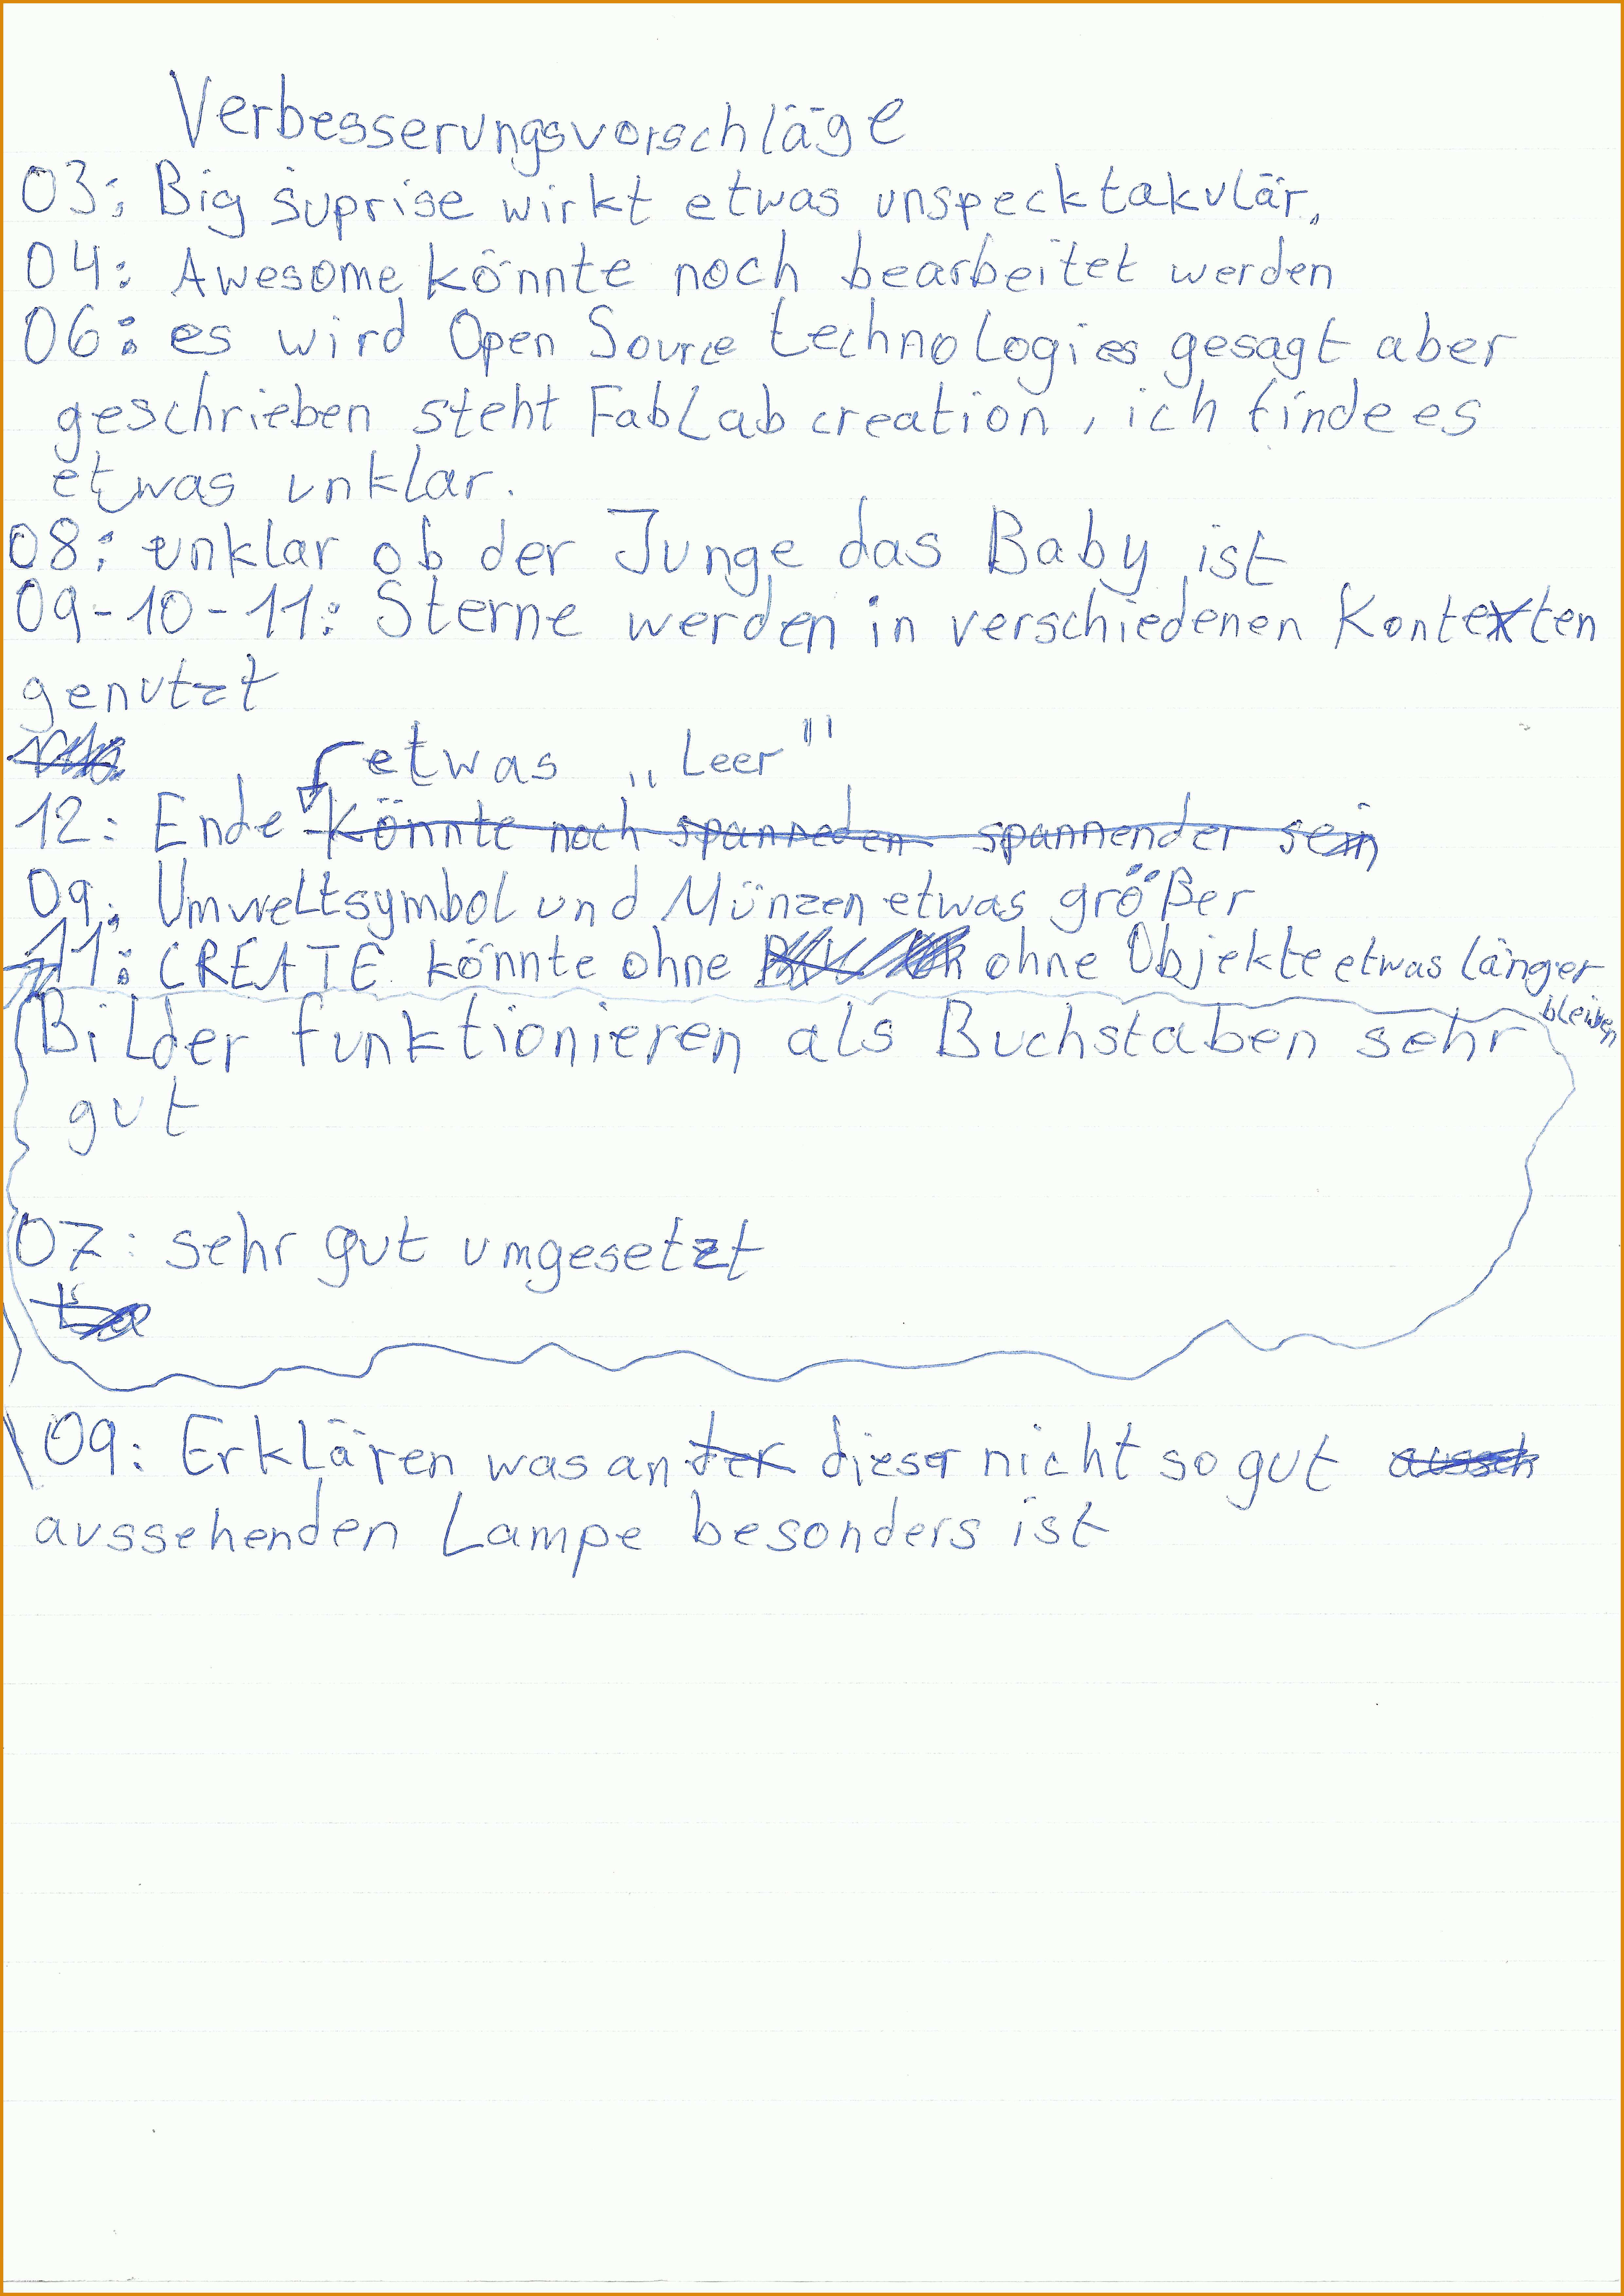 Verbesserungsvorschläge
03: Big suprise wirkt etwas unspecktakulär.
04: Awesome könnte noch bearbeitet werden
06: es wird Open Source technologies gesagt aber
geschrieben steht FabLab creation, ich finde es
etwas unklar.
08: unklar ob der Junge das Baby ist
09-10-11: Sterne werden in verschiedenen Kontexten
genutzt
etwas „Leer"
12: Ende könnte noch spanneden spannender sein
09: Umweltsymbol und Münzen etwas größer
11: CREATE könnte ohne ohne Objekte etwas länger
bleiben
Bilder funktionieren als Buchstaben sehr
gut
07: sehr gut umgesetzt
09: Erklären was an der dieser nicht so gut
aussehenden Lampe besonders ist